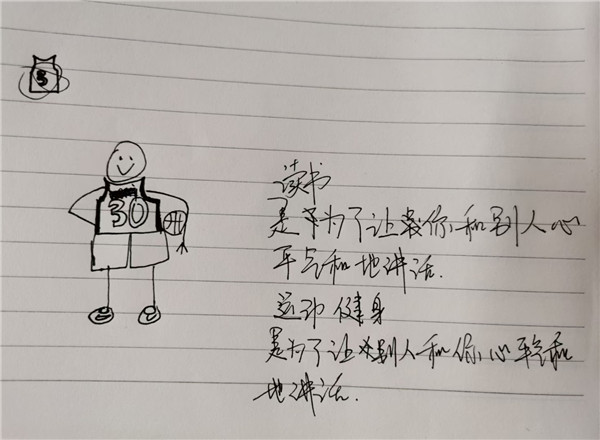 30
读书
是为了让你和别人心
平气和地讲话.
运动健身
是为了让别人和你心平气和
地讲话.